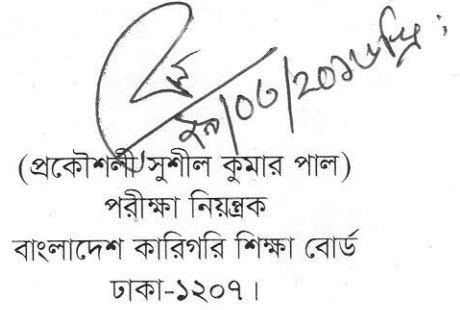 (প্রকৌশলী সুশীল কুমার পাল)
পরীক্ষা নিয়ন্ত্রক
বাংলাদেশ কারিগরি শিক্ষা বোর্ড
ঢাকা-১২০৭।